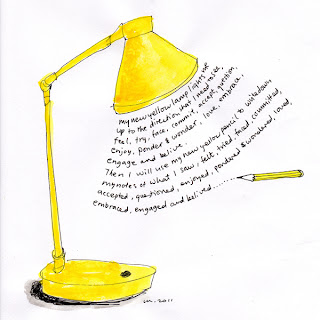 my new yellow lamp lights me
up to the direction that I need to see,
feel, try, face, commit, accept, question,
enjoy, ponder & wonder, love, embrace,
engage and belive.
Then I will use my new yellow pencil to write down
my notes of what I saw, felt, tried, faced, committed,
accepted, questioned, enjoyed, pondered & wondered, loved,
embraced, engaged and belived......
2011